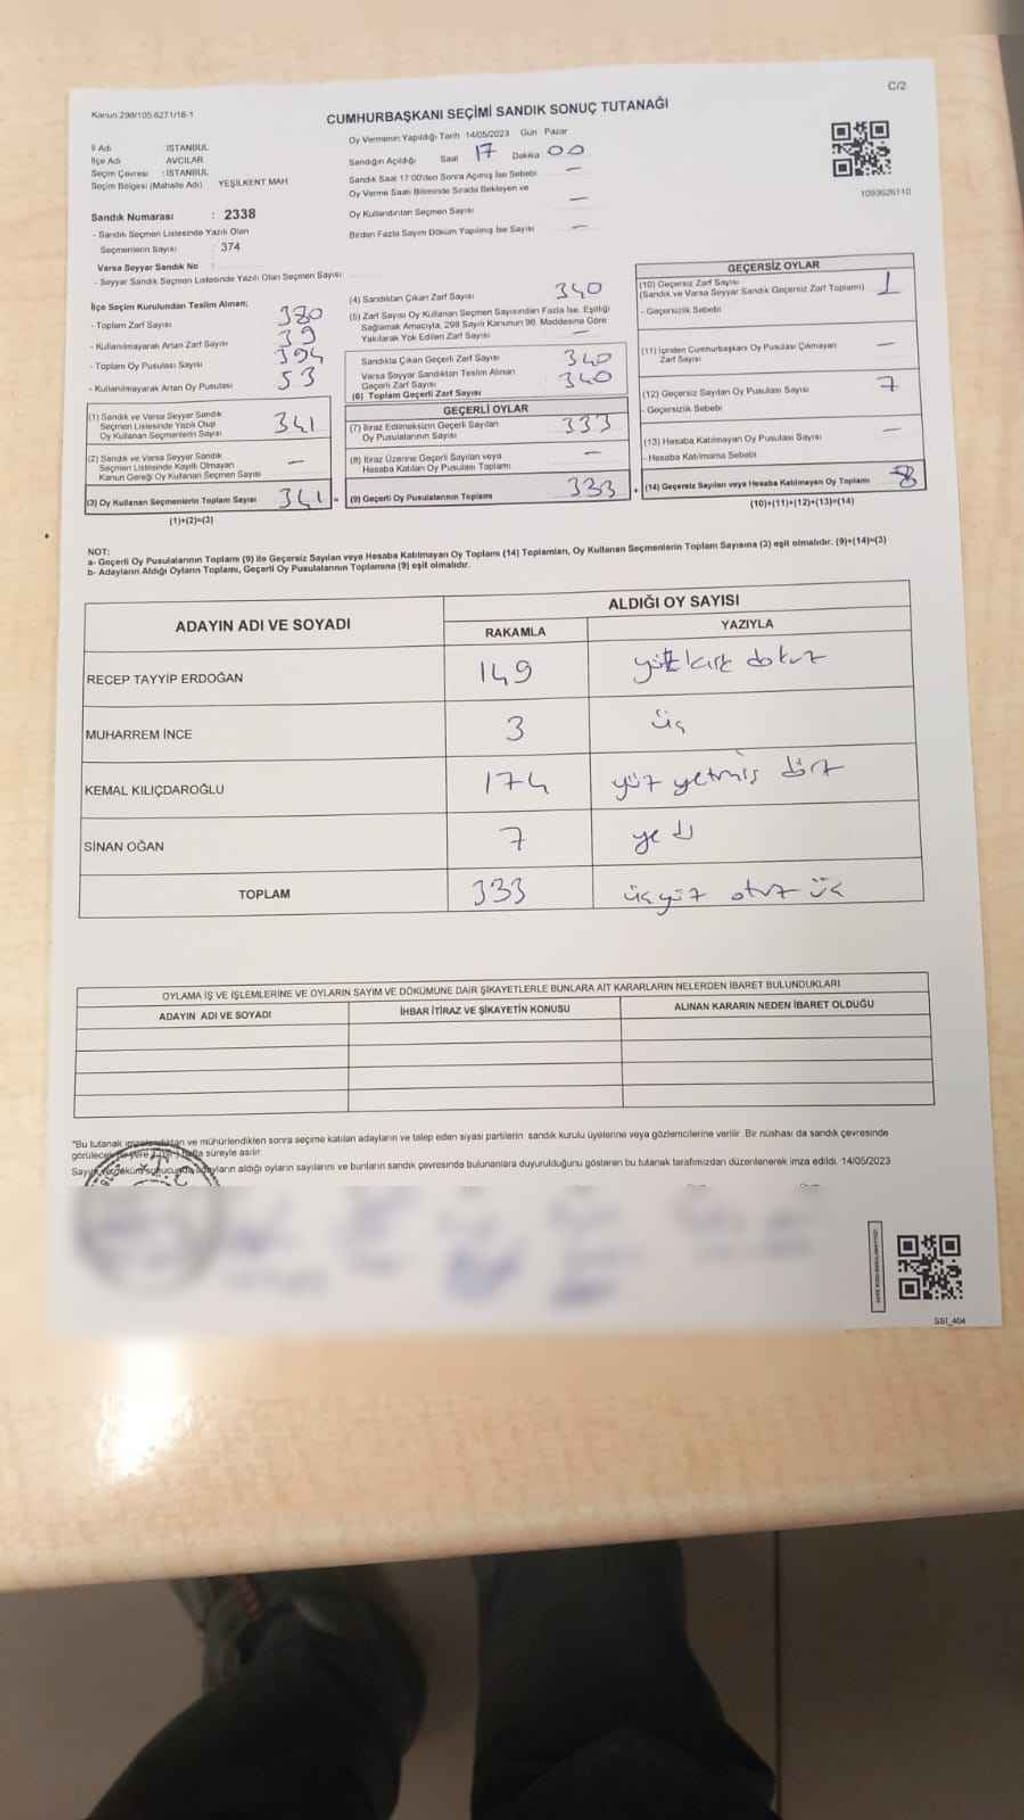 C/2
Kanun 298/105.6271/16-1
CUMHURBAŞKANI SEÇİMİ SANDIK SONUÇ TUTANAĞI
İl Adı : İSTANBUL
İlçe Adı : AVCILAR
Seçim Çevresi : İSTANBUL
Seçim Bölgesi (Mahalle Adı) YEŞİLKENT MAH
Sandık Numarası : 2338
- Sandık Seçmen Listesinde Yazılı Olan
Seçmenlerin Sayısı : 374
Varsa Seyyar Sandık No :
- Seyyar Sandık Seçmen Listesinde Yazılı Olan Seçmen Sayısı
Oy Vermenin Yapıldığı Tarih 14/05/2023 Gün Pazar
Sandığın Açıldığı Saat 17 Dakika 00
Sandık Saat 17:00'den Sonra Açılmış İse Sebebi —
Oy Verme Saati Bitiminde Sırada Bekleyen ve
Oy Kullandırılan Seçmen Sayısı —
Birden Fazla Sayım Döküm Yapılmış İse Sayısı —
1093626110
İlçe Seçim Kurulundan Teslim Alınan;
- Toplam Zarf Sayısı 380
- Kullanılmayarak Artan Zarf Sayısı 39
- Toplam Oy Pusulası Sayısı 394
- Kullanılmayarak Artan Oy Pusulası 53
(1) Sandık ve Varsa Seyyar Sandık
Seçmen Listesinde Yazılı Olup
Oy Kullanan Seçmenlerin Sayısı 341
(2) Sandık ve Varsa Seyyar Sandık
Seçmen Listesinde Kayıtlı Olmayan
Kanun Gereği Oy Kullanan Seçmen Sayısı —
(3) Oy Kullanan Seçmenlerin Toplam Sayısı 341 =
(1)+(2)=(3)
(4) Sandıktan Çıkan Zarf Sayısı 340
(5) Zarf Sayısı Oy Kullanan Seçmen Sayısından Fazla İse, Eşitliği
Sağlamak Amacıyla, 298 Sayılı Kanunun 98. Maddesine Göre
Yakılarak Yok Edilen Zarf Sayısı —
Sandıkta Çıkan Geçerli Zarf Sayısı 340
Varsa Seyyar Sandıktan Teslim Alınan
Geçerli Zarf Sayısı 340
(6) Toplam Geçerli Zarf Sayısı
GEÇERLİ OYLAR
(7) İtiraz Edilmeksizin Geçerli Sayılan
Oy Pusulalarının Sayısı 333
(8) İtiraz Üzerine Geçerli Sayılan veya
Hesaba Katılan Oy Pusulası Toplamı —
(9) Geçerli Oy Pusulalarının Toplamı 333 +
GEÇERSİZ OYLAR
(10) Geçersiz Zarf Sayısı
(Sandık ve Varsa Seyyar Sandık Geçersiz Zarf Toplamı) 1
- Geçersizlik Sebebi
(11) İçinden Cumhurbaşkanı Oy Pusulası Çıkmayan
Zarf Sayısı —
(12) Geçersiz Sayılan Oy Pusulası Sayısı 7
- Geçersizlik Sebebi
(13) Hesaba Katılmayan Oy Pusulası Sayısı —
- Hesaba Katılmama Sebebi
(14) Geçersiz Sayılan veya Hesaba Katılmayan Oy Toplamı 8
(10)+(11)+(12)+(13)=(14)
NOT:
a- Geçerli Oy Pusulalarının Toplamı (9) ile Geçersiz Sayılan veya Hesaba Katılmayan Oy Toplamı (14) Toplamları, Oy Kullanan Seçmenlerin Toplam Sayısına (3) eşit olmalıdır. (9)+(14)=(3)
b- Adayların Aldığı Oyların Toplamı, Geçerli Oy Pusulalarının Toplamına (9) eşit olmalıdır.
ADAYIN ADI VE SOYADI ALDIĞI OY SAYISI
RAKAMLA YAZIYLA
RECEP TAYYİP ERDOĞAN 149 yüz kırk dokuz
MUHARREM İNCE 3 üç
KEMAL KILIÇDAROĞLU 174 yüz yetmiş dört
SİNAN OĞAN 7 yedi
TOPLAM 333 üçyüz otuz üç
OYLAMA İŞ VE İŞLEMLERİNE VE OYLARIN SAYIM VE DÖKÜMÜNE DAİR ŞİKAYETLERLE BUNLARA AİT KARARLARIN NELERDEN İBARET BULUNDUKLARI
ADAYIN ADI VE SOYADI İHBAR İTİRAZ VE ŞİKAYETİN KONUSU ALINAN KARARIN NEDEN İBARET OLDUĞU
*Bu tutanak imzalandıktan ve mühürlendikten sonra seçime katılan adayların ve talep eden siyasi partilerin sandık kurulu üyelerine veya gözlemcilerine verilir. Bir nüshası da sandık çevresinde
görülecek bir yere hafta süreyle asılır.
Sayım ve döküm sonucunda adayların aldığı oyların sayılarını ve bunların sandık çevresinde bulunanlara duyurulduğunu gösteren bu tutanak tarafımızdan düzenlenerek imza edildi. 14/05/2023
SSI_404